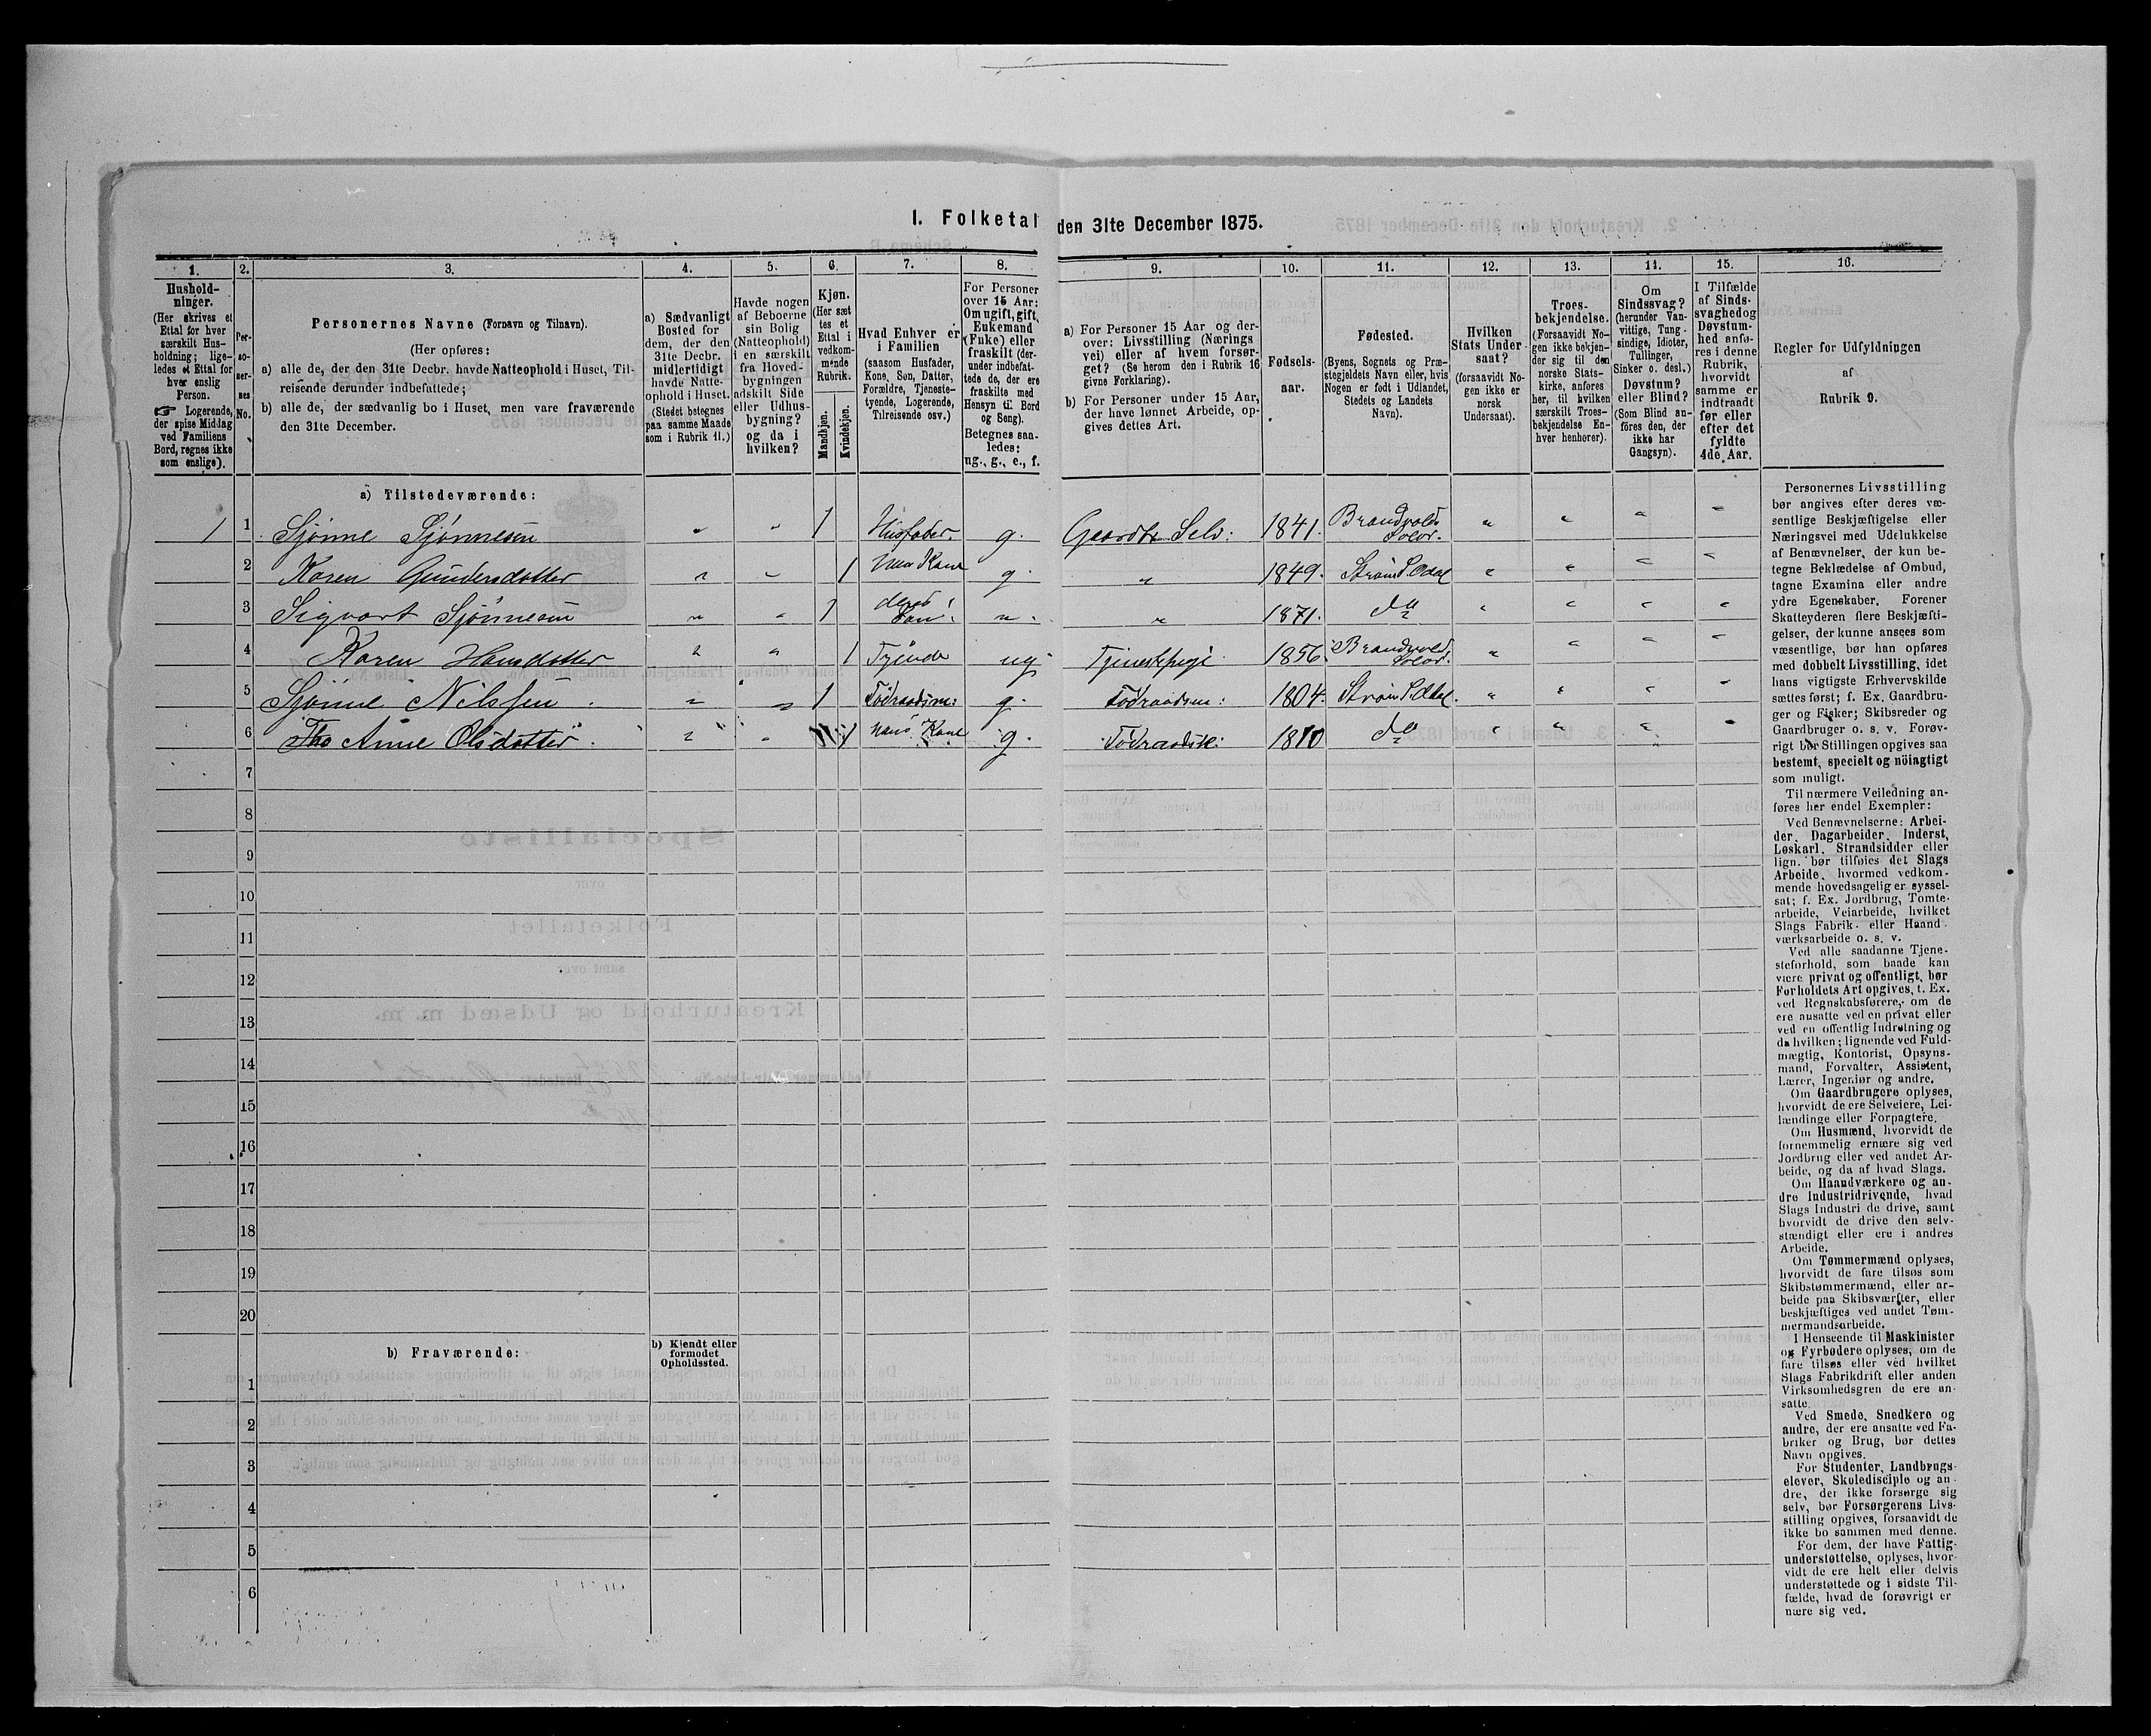 1. Folketal den 31te December 1875.
1. 2. 3. 4. 5. 6. 7. 8. 9. 10. 11. 12. 13. 14. 15. 16.
Hushold-
ninger.
(Her skrives et
Ettal for hver
særskilt Hus-
holdning; lige-
ledes et Ettal for
hver enslig
Person.
☞ Logerende,
der spise Middag
ved Familiens
Bord, regnes ikke
som enslige).
Per-
so-
ner-
nes
No.
Personernes Navne (Fornavn og Tilnavn).
(Her opføres:
a) alle de, der den 31te Decbr. havde Natteophold i Huset, Til-
reisende derunder indbefattede;
b) alle de, der sædvanlig bo i Huset, men vare fraværende
den 31te December.
a) Sædvanligt
Bosted for
dem, der den
31te Decbr.
midlertidigt
havde Natte-
ophold i Huset.
(Stedet betegnes
paa samme Maade
som i Rubrik 11.)
Havde nogen
af Beboerne
sin Bolig
(Natteophold)
i en særskilt
fra Hoved-
bygningen
adskilt Side
eller Udhus-
bygning?
og da i
hvilken?
Kjøn.
(Her sæt
tes et
Ettal i
vedkom-
mende
Rubrik.
Mandkjøn.
Kvindekjøn.
Hvad Enhver er
i Familien
(saasom Husfader,
Kone, Søn, Datter,
Forældre, Tjeneste-
tyende, Logerende,
Tilreisende osv.)
For Personer
over 15 Aar:
Om ugift, gift,
Enkemand
(Enke) eller
fraskilt (der-
under indbefat-
tede de, der ere
fraskilte med
Hensyn til Bord
og Seng).
Betegnes saa-
ledes:
ug., g., e., f.
a) For Personer 15 Aar og der-
over: Livsstilling (Nærings
vei) eller af hvem forsør-
get? (Se herom den i Rubrik 16
givne Forklaring).
b) For Personer under 15 Aar,
der have lønnet Arbeide, op-
gives dettes Art.
Fødsels-
aar.
Fødested.
(Byens, Sognets og Præ-
stegjeldets Navn eller, hvis
Nogen er født i Udlandet,
Stedets og Landets
Navn).
Hvilken
Stats Under
saat?
(forsaavidt No-
gen ikke er
norsk
Undersaat).
Troes-
bekjendelse.
(Forsaavidt No-
gen ikke bekjen-
der sig til den
norske Stats-
kirke, anføres
her, til hvilken
særskilt Troes-
bekjendelse En-
hver henhører).
Om
Sindssvag?
(herunder Van-
vittige, Tung-
sindige, Idioter,
Tullinger,
Sinker o. desl.)
Døvstum?
eller Blind?
(Som Blind an-
føres den, der
ikke har
Gangsyn).
I Tilfælde
af Sinds-
svaghedog
Døvstum-
hed anfø-
res i denne
Rubrik,
hvorvidt
samme er
indtraadt
før eller
efter det
fyldte
4de Aar.
Regler for Udfyldningen
af
Rubrik 9.
a) Tilstedeværende:
1 1 Sjönne Sjönnesen " " 1 Husfader. g. Gaardbr Selv: 1841. Brandvold Solør. " " " "
2 Karen Gundersdatter " " 1 Kone g. " 1849. Strøm S. Odal " " " "
3 Sigvart Sjönnesen " " 1 deres Søn. " 1871. do " " " "
4 Karen Hansdatter " " 1 Tjende ug Tjenestepige 1856. Brandvold Solør. " " " "
5 Sjönne Nilssen. " " 1 Födraadsm: g. Födraadsm: 1804. Strøm S. Odal. " " " "
6 Anne Olsdatter. " " 1 hans Kone g. Födraadsk: 1810 do " " " "
7
8
9
10
11
12
13
14
15
16
17
18
19
20
b) Fraværende:
b) Kjendt eller
formodet
Opholdssted.
1
2
3
4
5
6
Personernes Livsstilling
bør angives efter deres væ-
sentlige Beskjæftigelse eller
Næringsvei med Udelukkelse
af Benævnelser, der kun be-
tegne Beklædelse af Ombud,
tagne Examina eller andre
ydre Egenskaber. Forener
Skatteyderen flere Beskjæfti-
gelser, der kunne ansees som
væsentlige, bør han opføres
med dobbelt Livsstilling, idet
hans vigtigste Erhvervskilde
sættes først; f. Ex. Gaardbru-
ger og Fisker; Skibsreder og
Gaardbruger o. s. v. Forøv-
rigt bør Stillingen opgives saa
bestemt, specielt og nöiagtigt
som muligt.
Til nærmere Veiledning an-
føres her endel Exempler:
Ved Benævnelserne: Arbei-
der, Dagarbeider, Inderst,
Løskarl, Strandsidder eller
lign. bør tilføies det Slags
Arbeide, hvormed vedkom-
mende hovedsagelig er syssel-
sat; f. Ex. Jordbrug, Tomte-
arbeide, Veiarbeide, hvilket
Slags Fabrik- eller Haand-
værksarbeide o. s. v.
Ved alle saadanne Tjene-
steforhold, som baade kan
være privat og offentligt, bør
Forholdets Art opgives, t. Ex.
ved Regnskabsførere, om de
ere ansatte ved en privat eller
ved en offentlig Indretning og
da hvilken; lignende ved Fuld-
mægtig, Kontorist, Opsyns-
mand, Forvalter, Assistent,
Lærer, Ingeniør og andre.
Om Gaardbrugere oplyses,
hvorvidt de ere Selveiere, Lei-
lændinge eller Forpagtere.
Om Husmænd, hvorvidt de
fornemmelig ernære sig ved
Jordbrug eller ved andet Ar-
beide, og da af hvad Slags.
Om Haandværkere og an-
dre Industridrivende, hvad
Slags Industri de drive, samt
hvorvidt de drive den selv-
stændigt eller ere i andres
Arbeide.
Om Tømmermænd oplyses,
hvorvidt de fare tilsøs som
Skibstømmermænd, eller ar-
beide paa Skibsværfter, eller
beskjæftiges ved andet Tøm-
mermandsarbeide.
I Henseende til Maskinister
og Fyrbødere oplyses, om de
fare tilsøs eller ved hvilket
Slags Fabrikdrift eller anden
Virksomhedsgren de ere an-
satte.
Ved Smede, Snedkere og
andre, der ere ansatte ved Fa-
briker og Brug, bør dettes
Navn opgives.
For Studenter, Landbrugs-
elever, Skoledisciple og an-
dre, der ikke forsørge sig
selv, bør Forsørgerens Livs-
stilling opgives, forsaavidt de
ikke bo sammen med denne.
For dem, der have Fattig-
understøttelse, oplyses, hvor-
vidt de ere helt eller delvis
understøttede og i sidste Til-
fælde, hvad de forøvrigt er
nære sig ved.